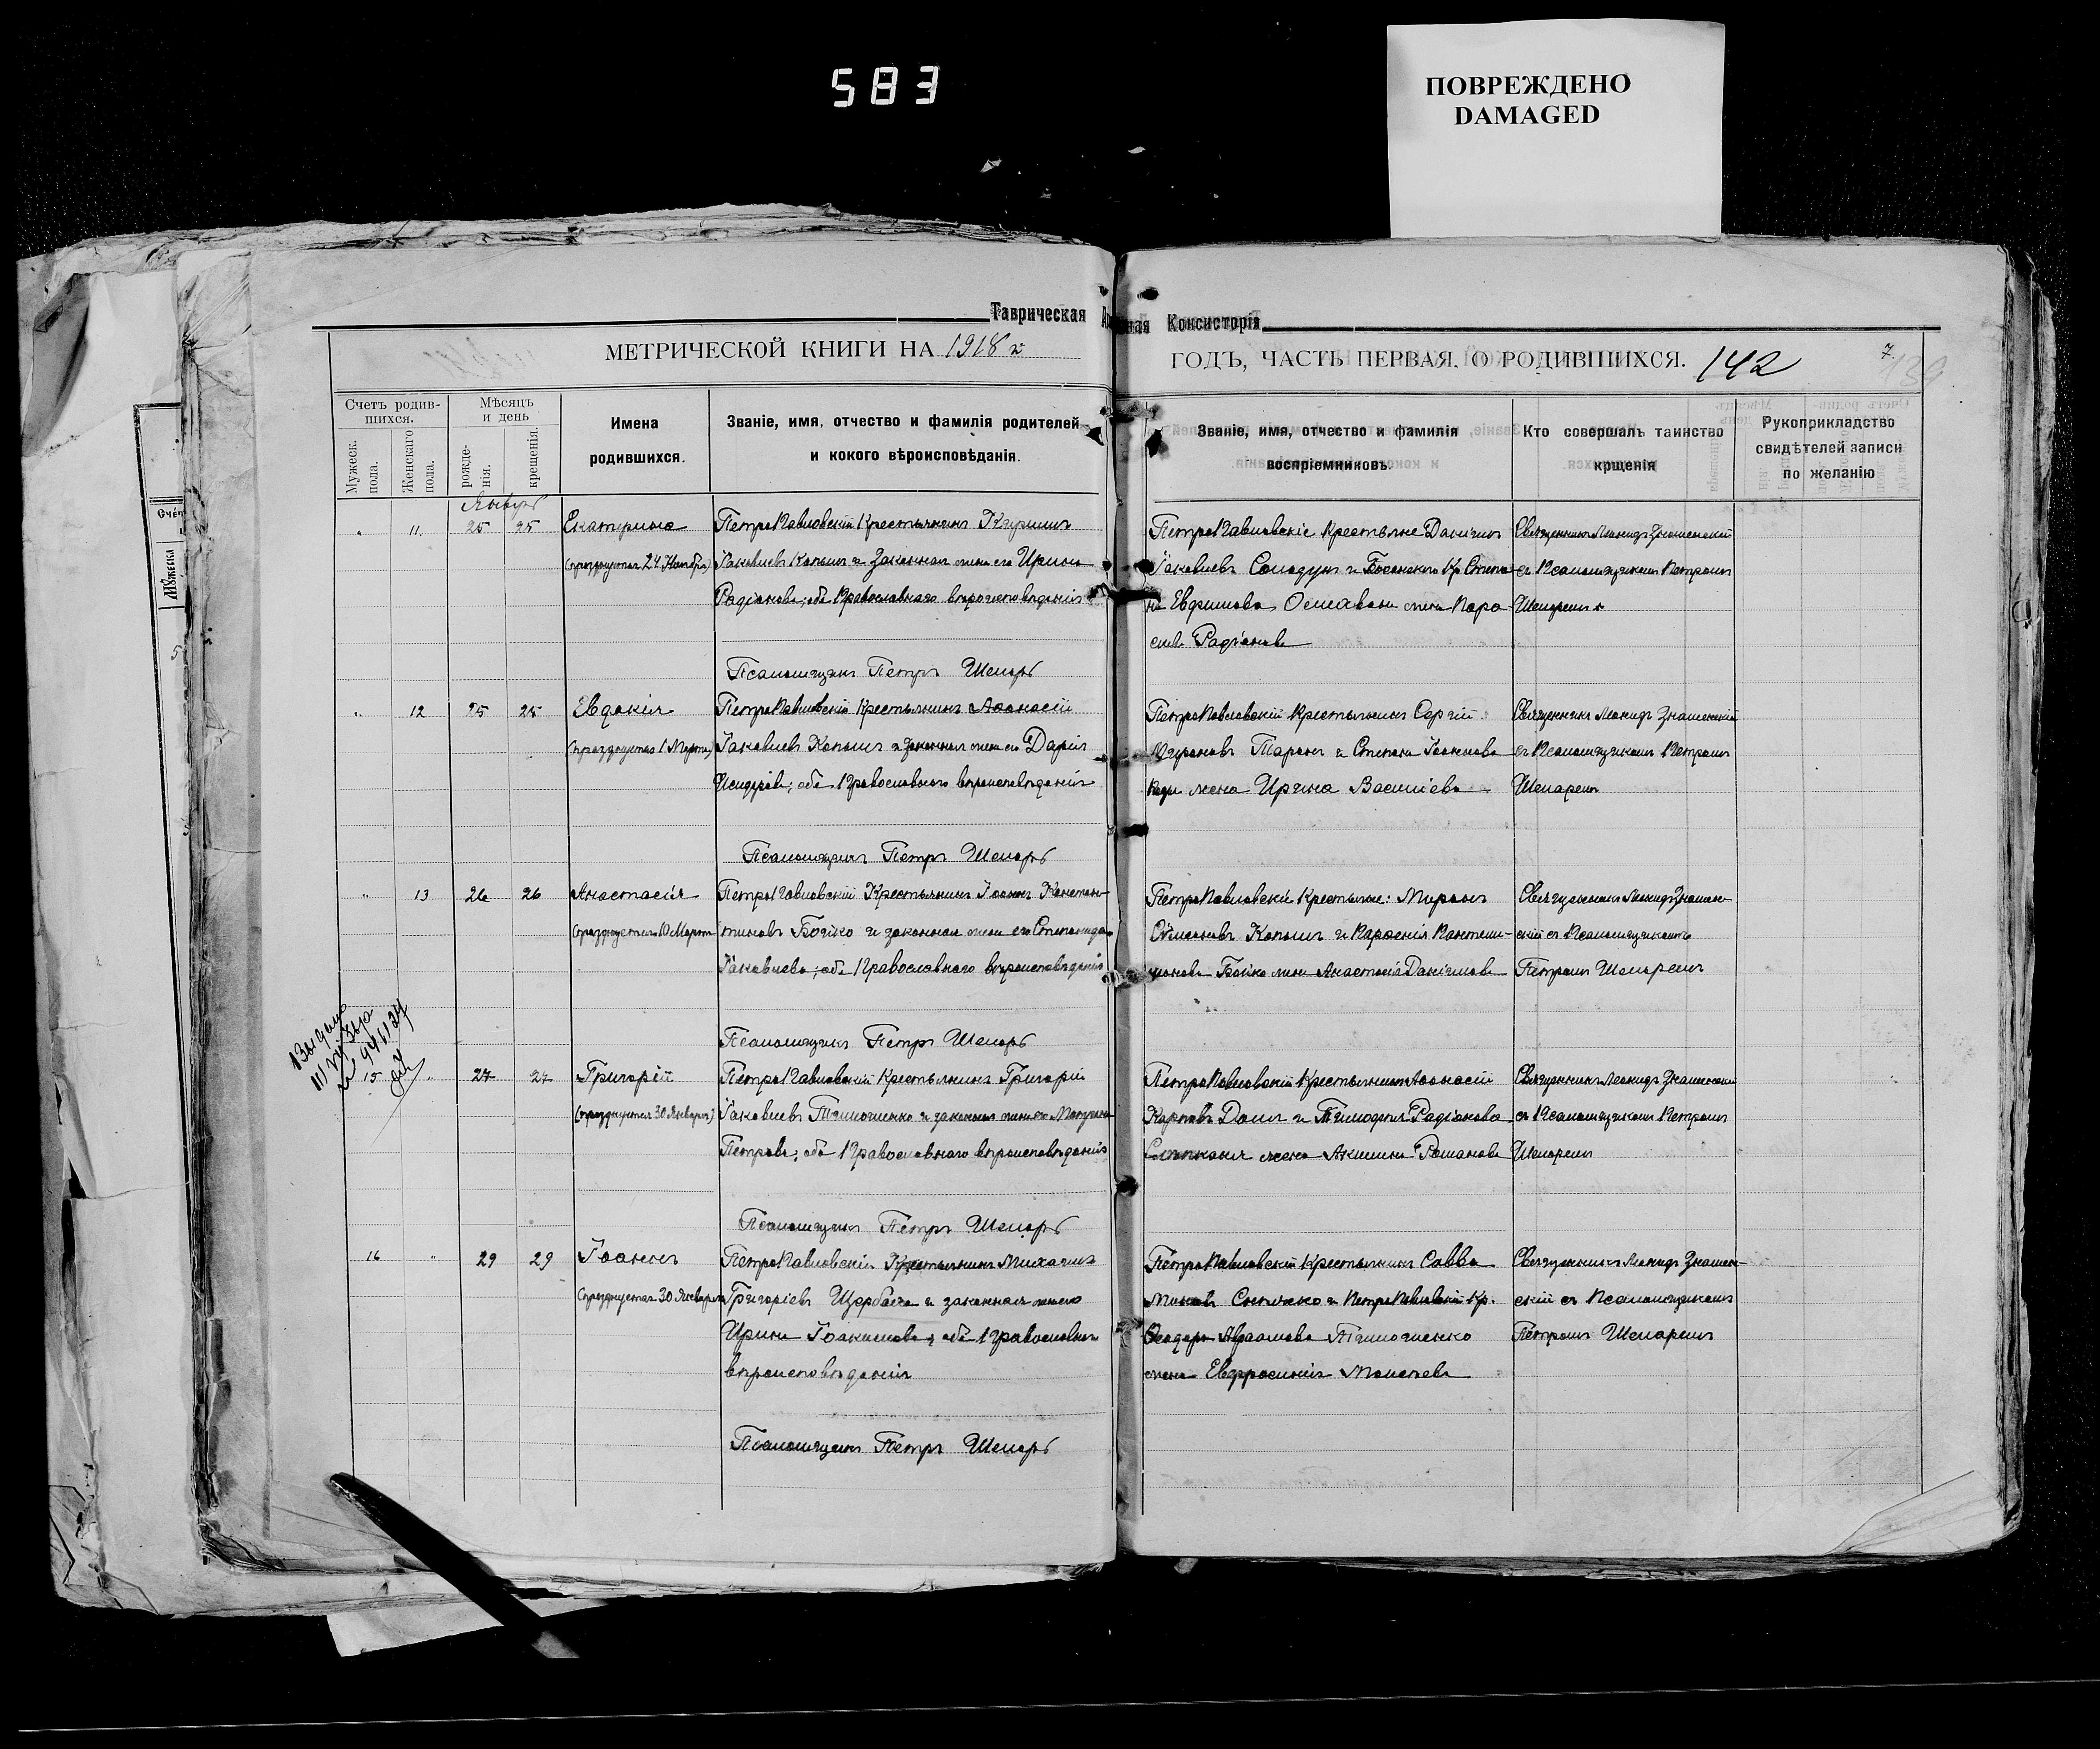 583
ПОВРЕЖДЕНО
DAMAGED
Таврическая
Консисторія
МЕТРИЧЕСКОЙ КНИГИ НА 1918 г
ГОДЪ, ЧАСТЬ ПЕРВАЯ, О РОДИВШИХСЯ. 142
7.
139
Счетъ родив-
шихся.
Мужеск.
пола.
Женскаго
пола.
Мѣсяцъ
и день
рожде-
нія.
крещенія.
Имена
родившихся.
Званіе, имя, отчество и фамилія родителей
и кокого вѣроисповѣданія.
Званіе, имя, отчество и фамилія
воспріемниковъ.
Кто совершалъ таинство
крщенія
Рукоприкладство
свидѣтелей записи
по желанію
Январь
" 11. 25 25 Екатерина
(празднуетъ 24 Ноября)
ПетроПавловскій Крестьянинъ Кириллъ
Іаковлевъ Копылъ и законная жена его Ирина
Радіонова; оба Православнаго вѣроисповѣданія
Псаломщикъ Петръ Шепарь
ПетроПавловскіе Крестьяне Даніилъ
Іаковлевъ Солодунъ и Кр. Степа-
на Евфимова жена Пара-
скева Радіонова
Священникъ Леонидъ Знаменскій
съ Псаломщикомъ Петромъ
Шепаремъ
" 12 25 25 Евдокія
(празднуетъ 1 Марта)
ПетроПавловскій Крестьянинъ Аѳанасій
Іаковлевъ Копылъ и законная жена его Дарія
Исидорова; оба Православнаго вѣроисповѣданія
Псаломщикъ Петръ Шепарь
ПетроПавловскій Крестьянинъ Сергій
Мироновъ Таранъ и Степана Іоаннова
жена Ирина Василіева
Священникъ Леонидъ Знаменскій
съ Псаломщикомъ Петромъ
Шепаремъ
" 13 26 26 Анастасія
(празднуетъ 10 Марта
ПетроПавловскій Крестьянинъ Іоаннъ Констан-
тиновъ Бойко и законная жена его Степанида
Іаковлева; оба Православнаго вѣроисповѣданія
Псаломщикъ Петръ Шепарь
ПетроПавловскіе Крестьяне: Миронъ
Симоновъ Копылъ и
Бойко жена Анастасія Даніилова
Священникъ Леонидъ Знамен-
скій съ Псаломщикомъ
Петромъ Шепаремъ
Выдано
15 " 27 27 Григорій
(празднуетъ 30 Января)
ПетроПавловскій Крестьянинъ Григорій
Іаковлевъ Тимошенко и законная жена его Матрона
Петрова; оба Православнаго вѣроисповѣданія
Псаломщикъ Петръ Шепарь
ПетроПавловскій Крестьянинъ Аѳанасій
Карповъ и Тимофея Радіонова
жена Акилина Романова
Священникъ Леонидъ Знаменскій
съ Псаломщикомъ Петромъ
Шепаремъ
16 " 29 29 Іоаннъ
(празднуетъ 30 Января
ПетроПавловскій Крестьянинъ Михаилъ
Григоріевъ Щербача и законная жена его
Ирина Іоакимова; оба Православнаго
вѣроисповѣданія
Псаломщикъ Петръ Шепарь
ПетроПавловскій Крестьянинъ Савва
и ПетроПавловскій Кр.
Ѳеодора Авраамова Тимошенко
жена Евфросинія Моисеева
Священникъ Леонидъ Знамен-
скій съ Псаломщикомъ
Петромъ Шепаремъ